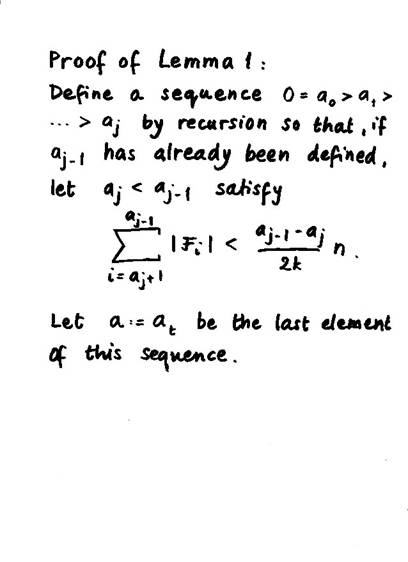 Proof of Lemma 1:
Define a sequence 0 = a₀ > a₁ >
... > aⱼ by recursion so that, if
aⱼ₋₁ has already been defined,
let aⱼ < aⱼ₋₁ satisfy
∑_{i=aⱼ+1}^{aⱼ₋₁} |ℱᵢ| < (aⱼ₋₁ - aⱼ)/(2k) n.
Let a := aₜ be the last element
of this sequence.